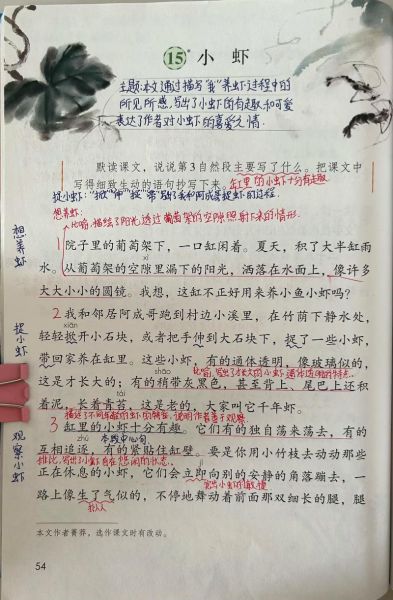 15* 小虾
主题:本文通过描写"我"养虾过程中的
所见所感,写出了小虾的有趣和可爱
表达了作者对小虾的喜爱之情.
默读课文,说说第3自然段主要写了什么。把课文中
写得细致生动的语句抄写下来。缸里的小虾十分有趣
捉小虾:"掀""伸""捉""带"写了我和阿成是捉虾的过程.
想养虾:
比喻,描绘了阳光透过葡萄架的空隙照射下来的情形.
想养虾
1 院子里的葡萄架下,一口缸闲着。夏天,积了大半缸雨
水。从葡萄架的空隙里漏下的阳光,洒落在水面上,像许多
大大小小的圆镜。我想,这缸不正好用来养小鱼小虾吗?
捉小虾
2 我和邻居阿成跑到村边小溪里,在竹荫下静水处,
xiān
轻轻掀开小石块,或者把手伸到大石块下,捉了一些小虾,
带回家养在缸里。这些小虾,有的通体透明,像玻璃似的,
比喻,写出了才长大的小虾通体透明的特点.
shāo
这是才长大的;有的稍带灰黑色,甚至背上、尾巴上还积
tái
着泥,长着青苔,这是老的,大家叫它千年虾。
描述了不同年龄的虾的特点,说明作者善于观察
观察小虾
3 缸里的小虾十分有趣。它们有的独自荡来荡去,有的
zhú 本段中心句
互相追逐,有的紧贴住缸壁。要是你用小竹枝去动动那些
排比,写出了小虾自在悠闲的状态.
正在休息的小虾,它们会立即向别的安静的角落蹦去,一
写出小虾的敏捷
路上像生了气似的,不停地舞动着前面那双细长的腿,腿
拟人
本文作者菁莽,选作课文时有改动。
54